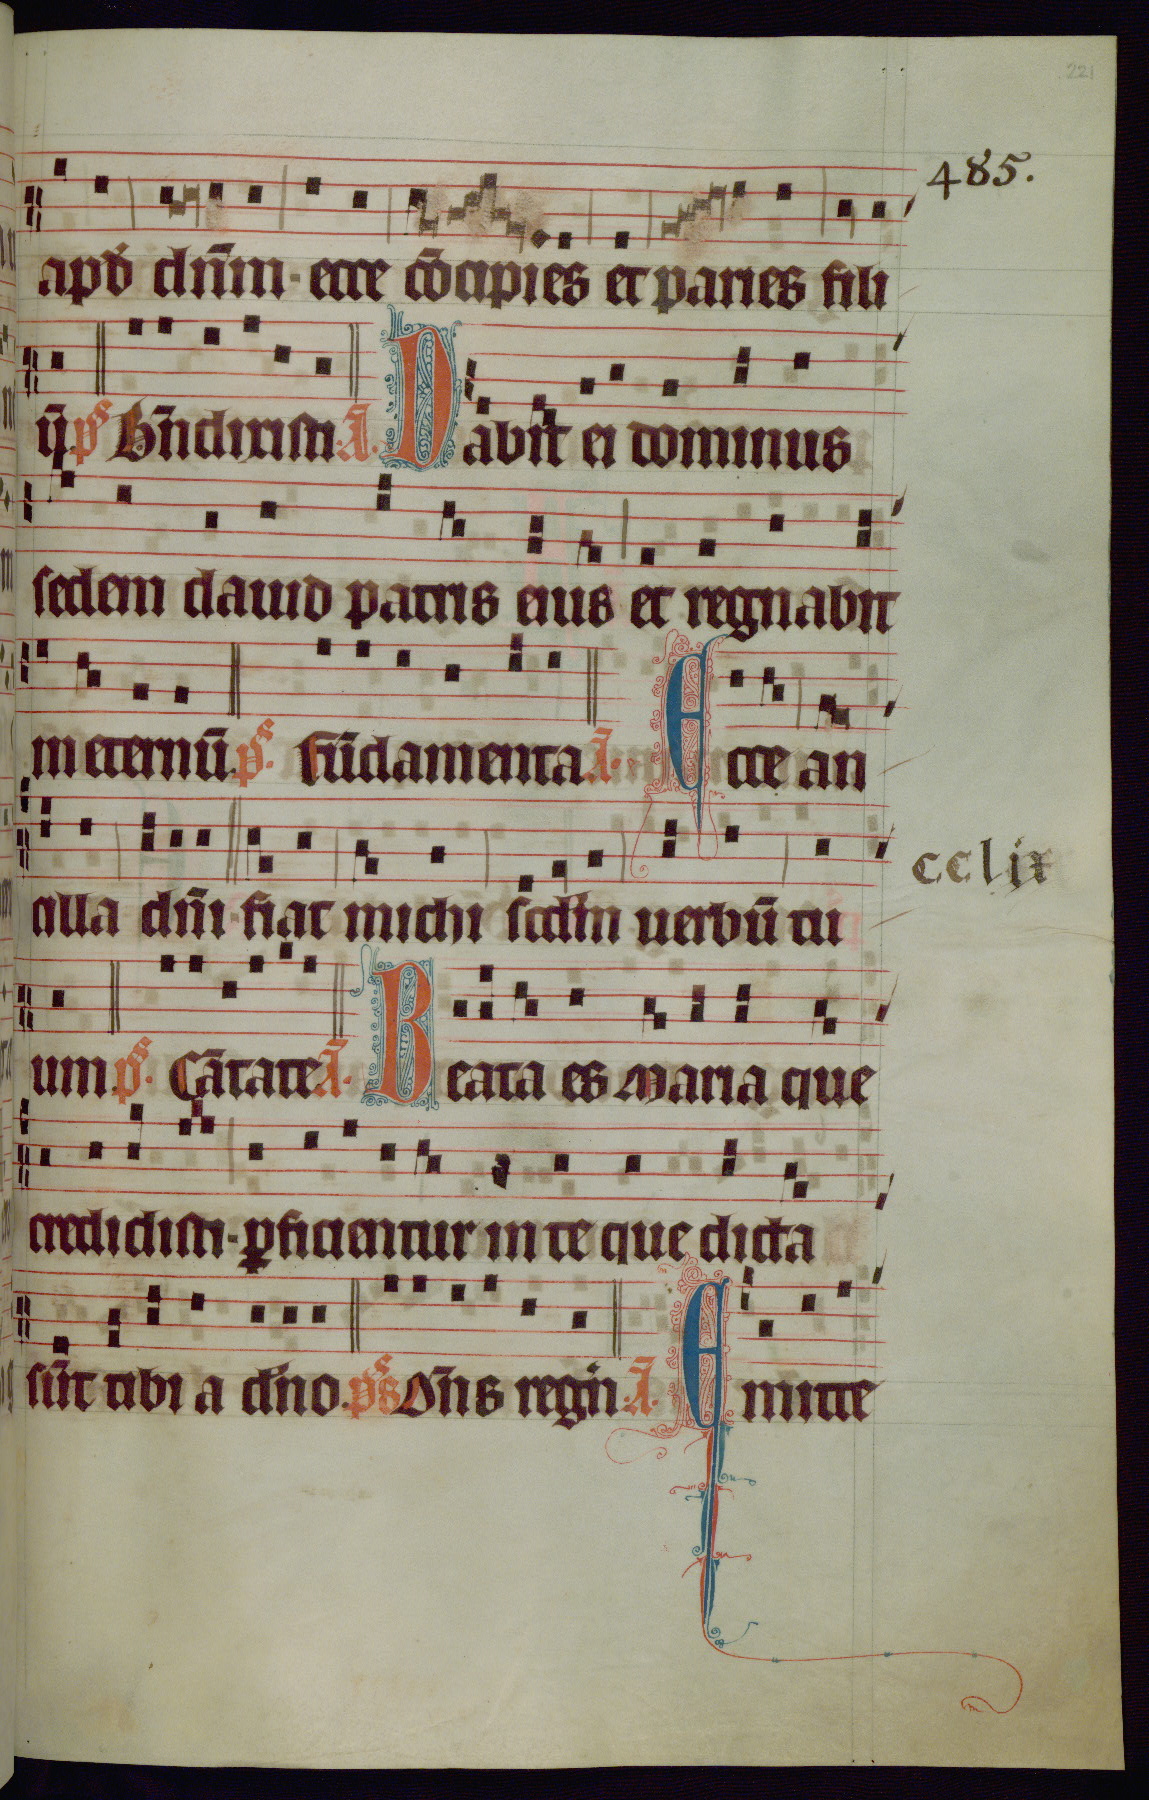 221
485.
apd̄ dn̄m · ecce cō​cipies et paries fili
ū. ps Bn̄dixisti. A̅. Dabit ei dominus
sedem dauid patris eius et regnabit
in eternū. ps. Fūdamenta A̅. Ecce an
cilla dn̄i · fiat michi scd̄m uerbū tu
cclix
um. ps. Cātate A̅. Beata es maria que
credidisti · ꝑficientur in te que dicta
sūt tibi a dn̄o. ps Dn̄s regn̄. A̅. Emitte